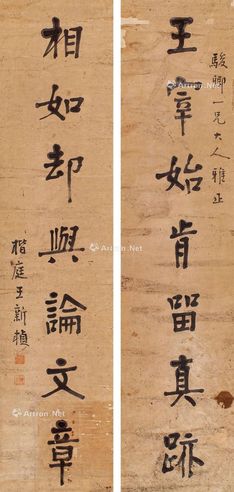 駿卿一兄大人雅正
王宰始肯留真跡
相如却與論文章
楷庭王新楨
Artron.Net
Artron.Net
Artron.Net
Artron.Net